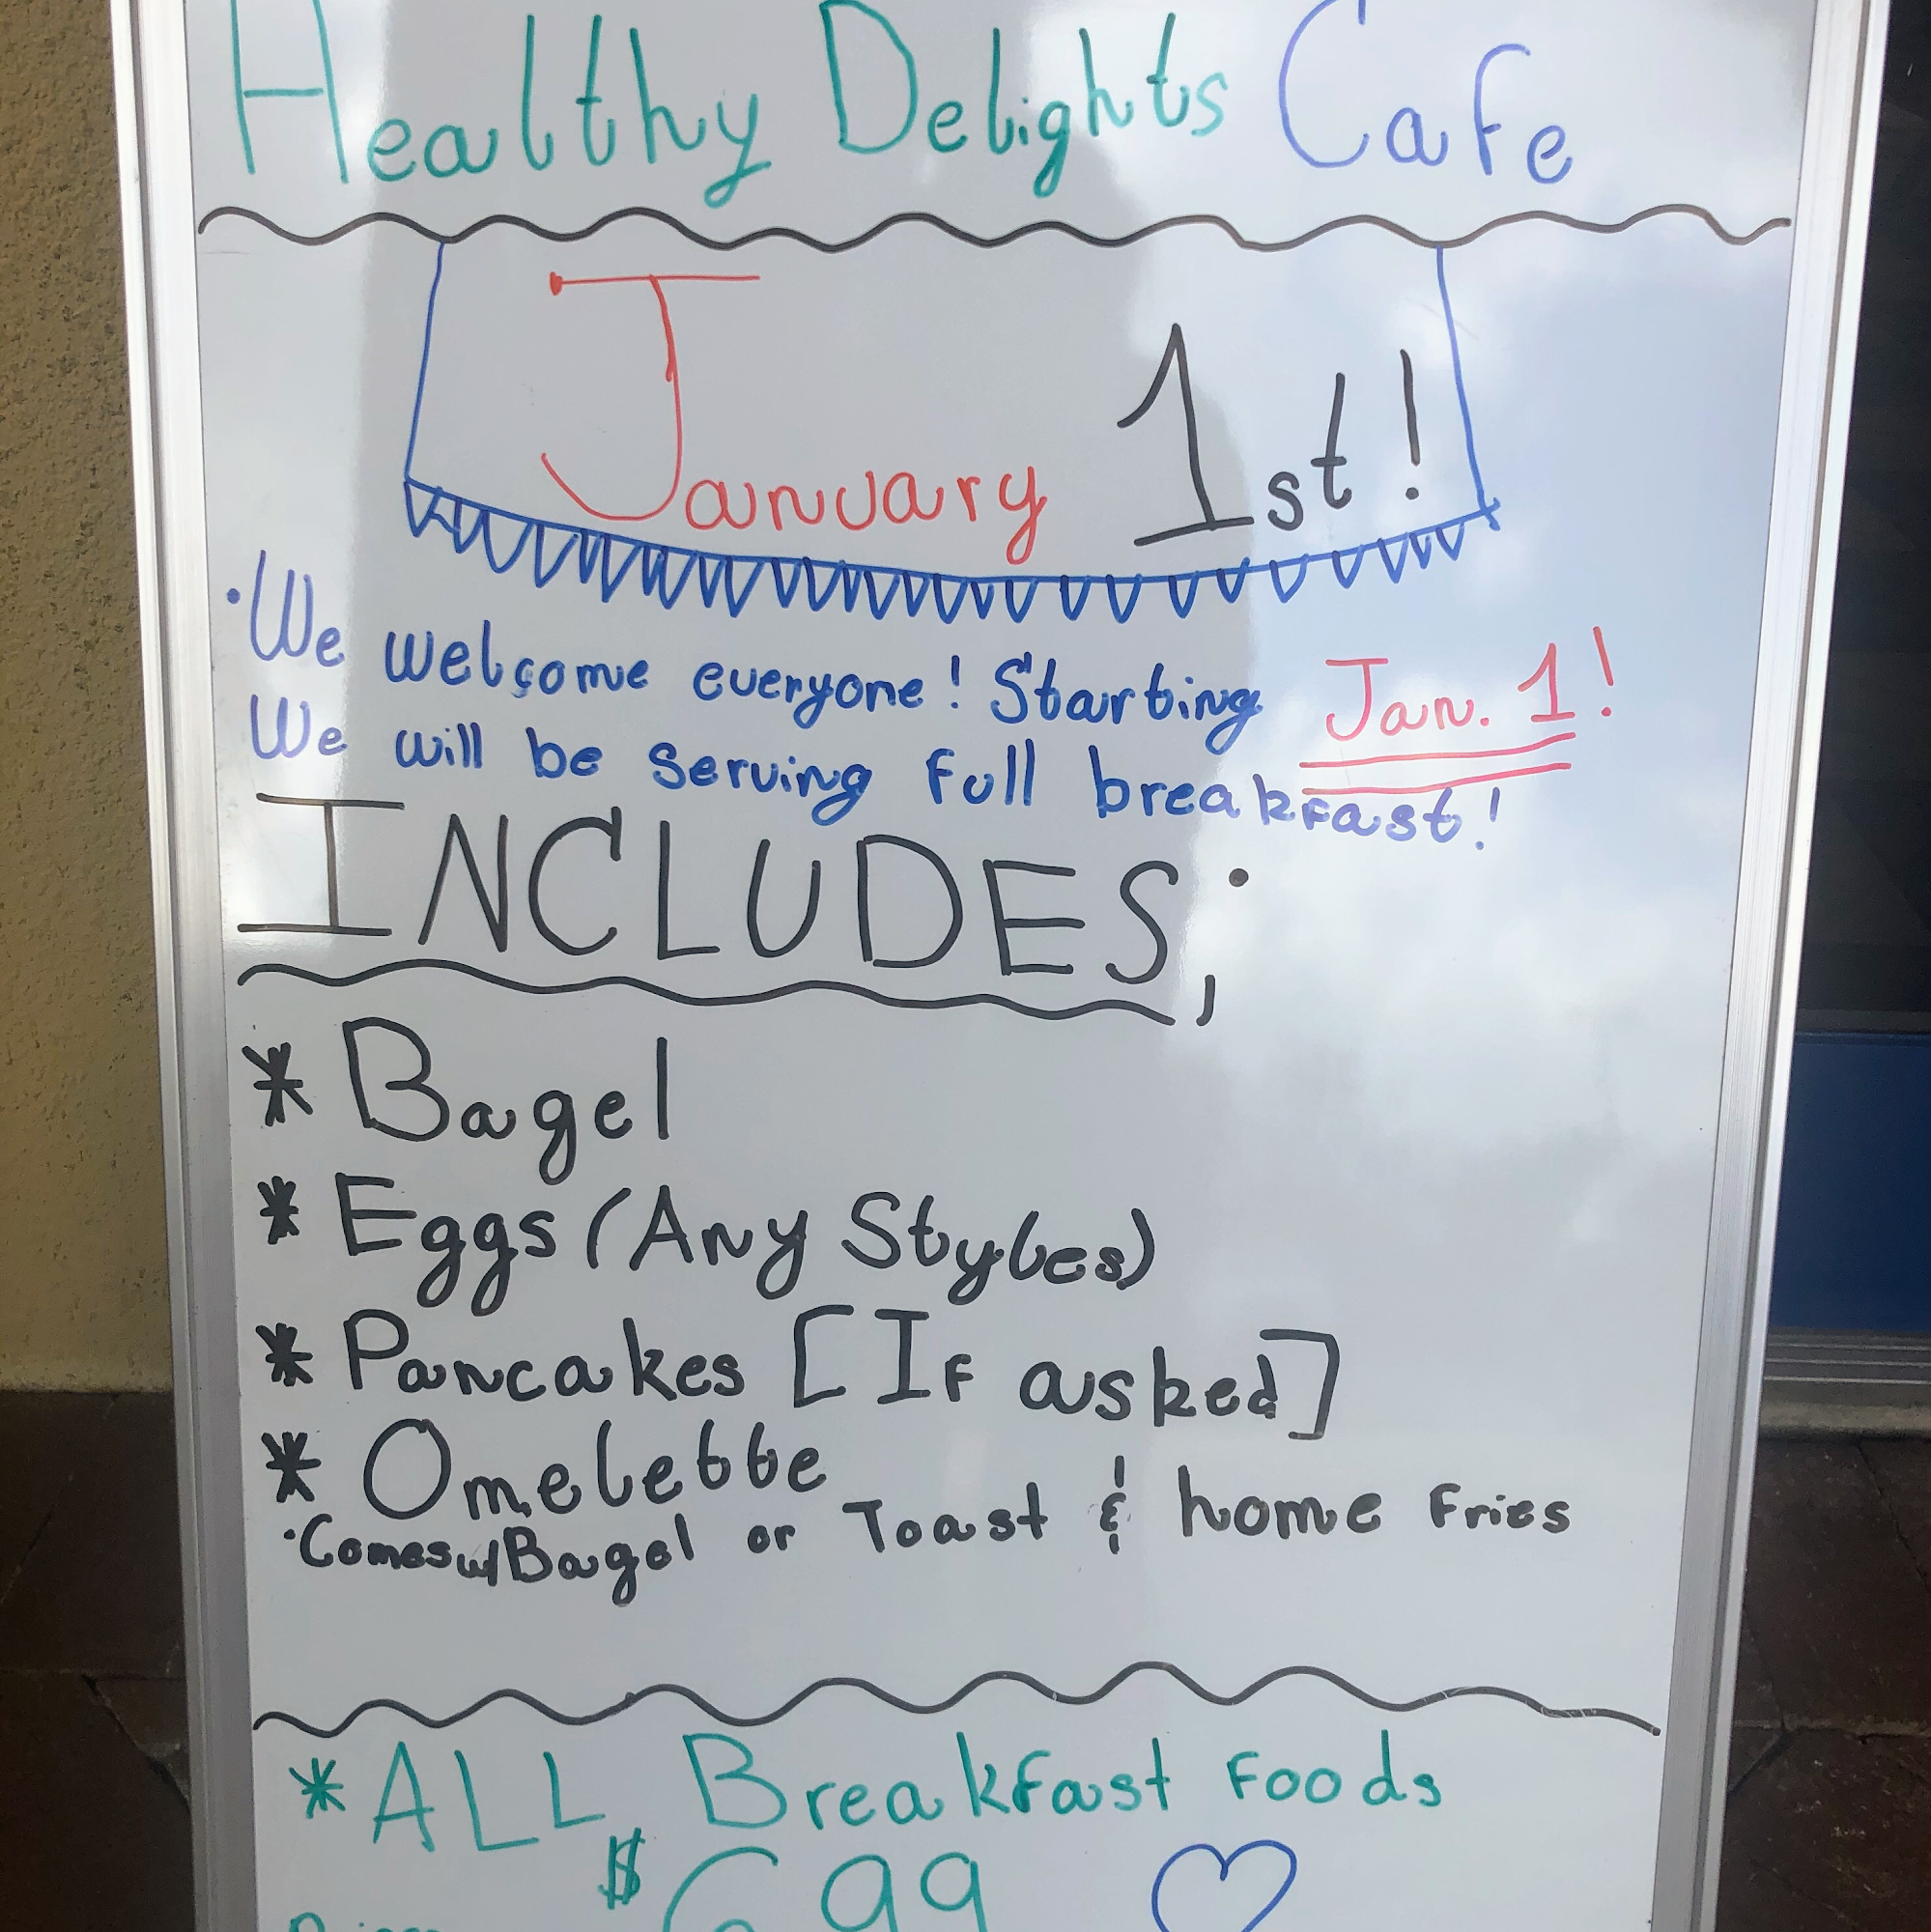 Healthy Delights Cafe
January 1st!
·We welcome everyone! Starting Jan. 1!
We will be serving full breakfast!
INCLUDES;
* Bagel
* Eggs (Any Styles)
* Pancakes [If asked]
* Omelette
·Comes w/Bagel or Toast & home Fries
*ALL Breakfast Foods
$ 6.99